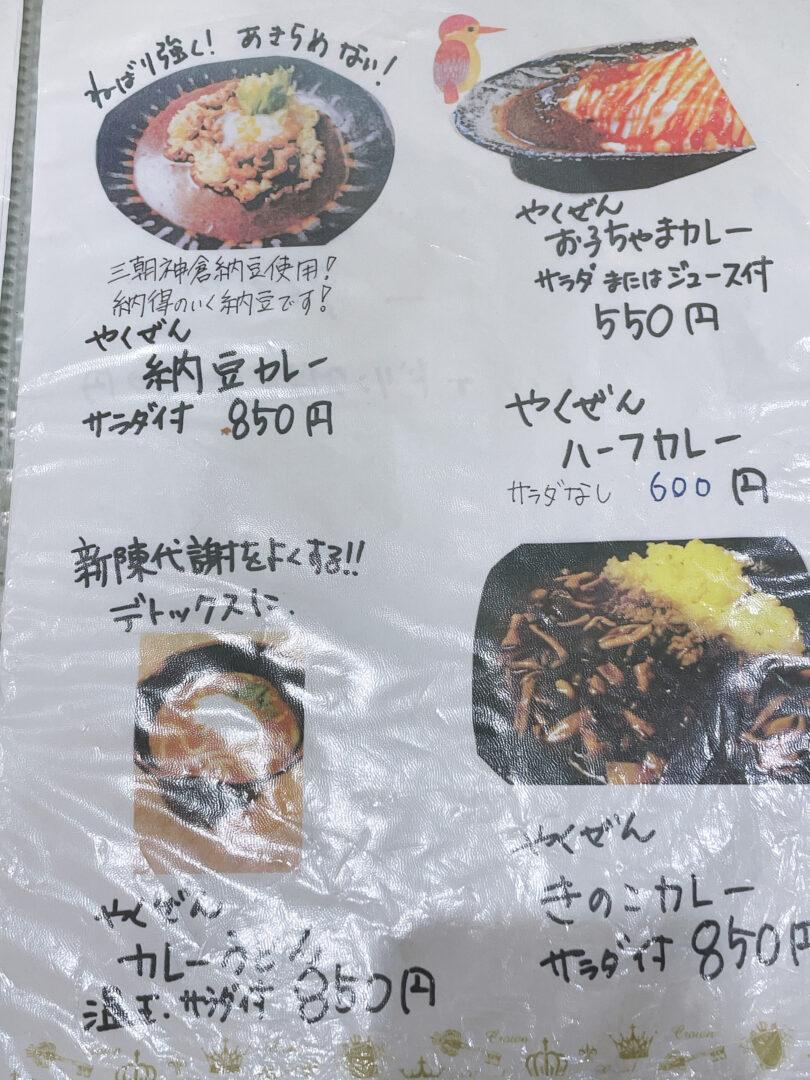 ねばり強く！ あきらめない！
三朝神倉納豆使用！
納得のいく納豆です！
やくぜん
納豆カレー
サラダ付 850円
やくぜん
お子ちゃまカレー
サラダまたはジュース付
550円
やくぜん
ハーフカレー
サラダなし 600円
新陳代謝をよくする!!
デトックスに、
やくぜん
カレーうどん
温玉・サラダ付 850円
やくぜん
きのこカレー
サラダ付 850円
Crown
Crown